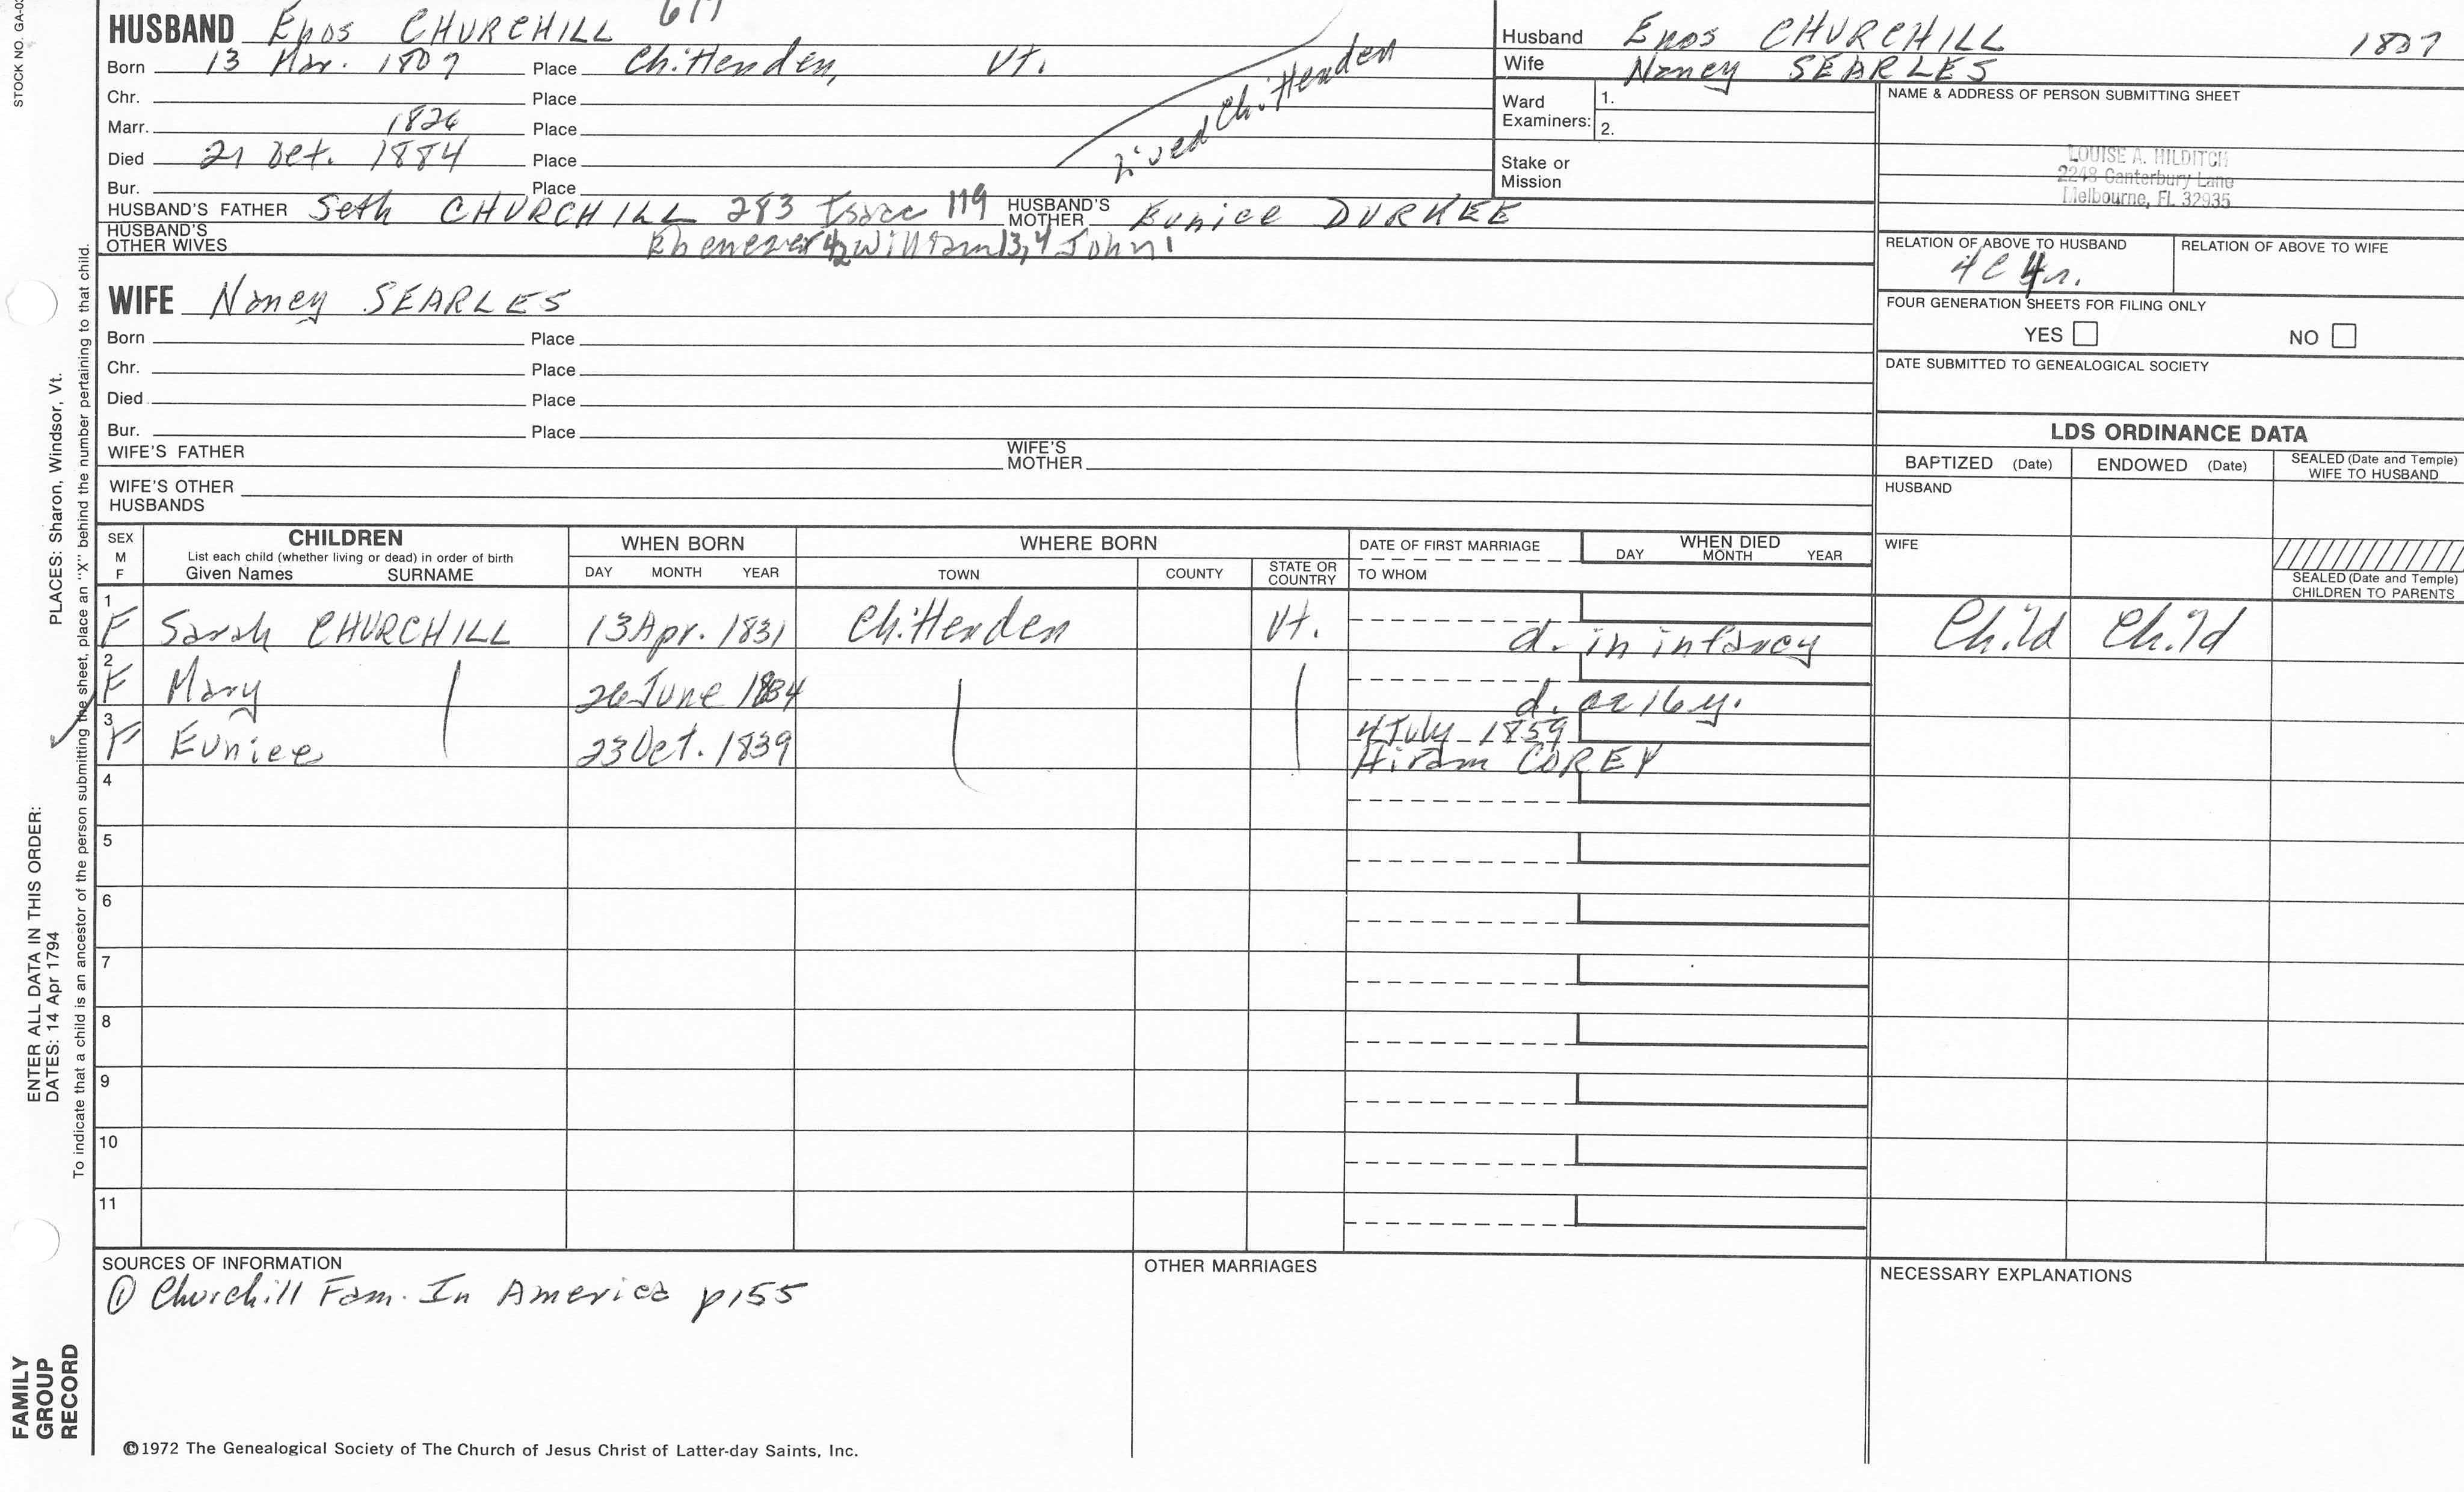 STOCK NO. GA-0
617
HUSBAND Enos CHURCHILL
Born 13 Mar. 1807 Place Chittenden, Vt.
Chr. Place
Marr. 1826 Place
Died 21 Oct. 1884 Place
Bur. Place
Lived Chittenden
HUSBAND'S FATHER Seth CHURCHILL 283 Isaac 119 HUSBAND'S MOTHER Eunice DURKEE
HUSBAND'S OTHER WIVES
Ebenezer 42 William 13,4 John 1
Husband Enos CHURCHILL 1807
Wife Nancy SEARLES
Ward Examiners: 1.
2.
Stake or Mission
NAME & ADDRESS OF PERSON SUBMITTING SHEET
LOUISE A. HILDITCH
2248 Canterbury Lane
Melbourne, FL 32935
RELATION OF ABOVE TO HUSBAND RELATION OF ABOVE TO WIFE
4C 4r.
FOUR GENERATION SHEETS FOR FILING ONLY
YES NO
DATE SUBMITTED TO GENEALOGICAL SOCIETY
WIFE Nancy SEARLES
Born Place
Chr. Place
Died Place
Bur. Place
WIFE'S FATHER WIFE'S MOTHER
WIFE'S OTHER HUSBANDS
LDS ORDINANCE DATA
BAPTIZED (Date) ENDOWED (Date) SEALED (Date and Temple) WIFE TO HUSBAND
HUSBAND
WIFE
SEALED (Date and Temple) CHILDREN TO PARENTS
SEX M F
CHILDREN
List each child (whether living or dead) in order of birth
Given Names SURNAME
WHEN BORN
DAY MONTH YEAR
WHERE BORN
TOWN COUNTY STATE OR COUNTRY
DATE OF FIRST MARRIAGE
TO WHOM
WHEN DIED
DAY MONTH YEAR
1 F Sarah CHURCHILL 13 Apr. 1831 Chittenden Vt. d. in infancy Child Child
2 F Mary 26 June 1834 d. ae 16 y.
3 F Eunice 23 Oct. 1839 4 July 1859
Hiram COREY
4
5
6
7
8
9
10
11
SOURCES OF INFORMATION
① Churchill Fam. In America p155
OTHER MARRIAGES
NECESSARY EXPLANATIONS
©1972 The Genealogical Society of The Church of Jesus Christ of Latter-day Saints, Inc.
PLACES: Sharon, Windsor, Vt.
To indicate that a child is an ancestor of the person submitting the sheet, place an "X" behind the number pertaining to that child.
ENTER ALL DATA IN THIS ORDER:
DATES: 14 Apr 1794
FAMILY
GROUP
RECORD